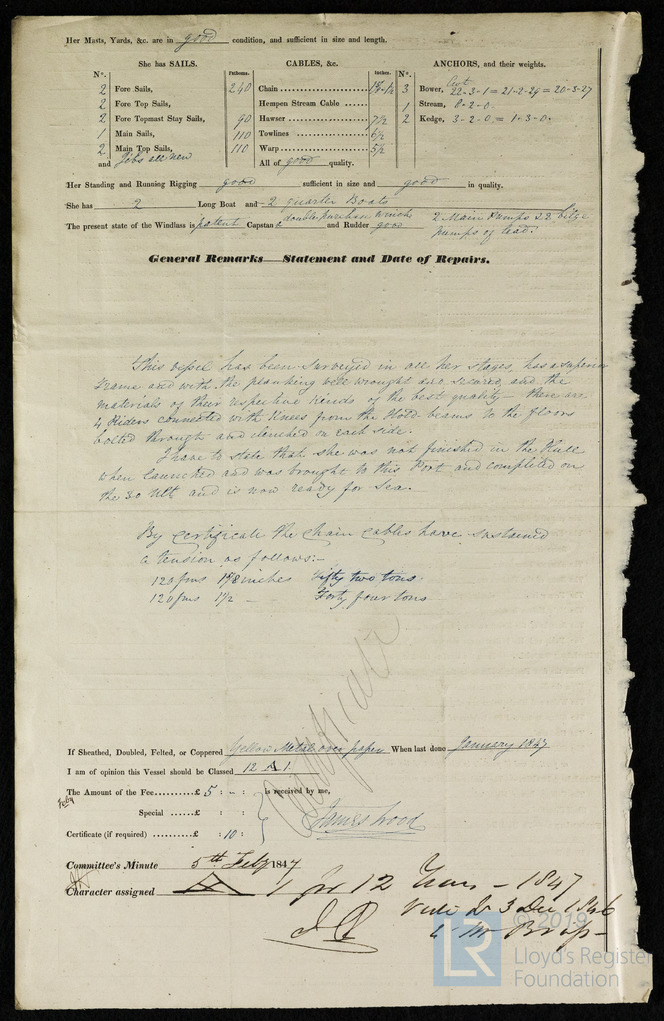 Her Masts, Yards, &c. are in good condition, and sufficient in size and length.
She has SAILS. CABLES, &c. ANCHORS, and their weights.
N°. Fathoms. Inches. N°.
2 Fore Sails, 240 Chain 1 5/8 - 1/2 3 Bower, Cwt 22-3-1 = 21-2-24 = 20-3-27
2 Fore Top Sails, Hempen Stream Cable 1 Stream, 8-2-0
2 Fore Topmast Stay Sails, 90 Hawser 7 1/2 2 Kedge, 3-2-0 = 1-3-0
1 Main Sails, 110 Towlines 6 1/2
2 Main Top Sails, 110 Warp 5 1/2
and Jibs all new All of good quality.
Her Standing and Running Rigging good sufficient in size and good in quality.
She has 2 Long Boat and 2 quarter Boats
The present state of the Windlass is patent Capstan double purchase winch and Rudder good 2 Main Pumps & 2 bilge
pumps of lead.
General Remarks — Statement and Date of Repairs.
This vessel has been surveyed in all her stages, has a superior
frame and with the planking well wrought and secured, and the
materials of their respective kinds of the best quality — there are
4 Riders connected with Knees from the Hold beams to the floors
bolted through and clenched on each side.
I have to state that she was not finished in the Hull
when launched and was brought to this Port and completed on
the 30 Ult and is now ready for Sea.
By certificate the Chain Cables have sustained
a tension as follows:-
120 fms 1 5/8 inches Fifty two tons.
120 fms 1 1/2 – Forty four tons
Certificate
If Sheathed, Doubled, Felted, or Coppered Yellow Metal over paper When last done January 1847
I am of opinion this Vessel should be Classed 12 A 1.
The Amount of the Fee £ 5 : - : is received by me,
Special £ :
Certificate (if required) £ : 10 :
James Wood
Committee's Minute 5th Feby 1847
Character assigned A 1 for 12 Years – 1847
3 Dec 1846
© 2019
LR
Lloyd's Register
Foundation